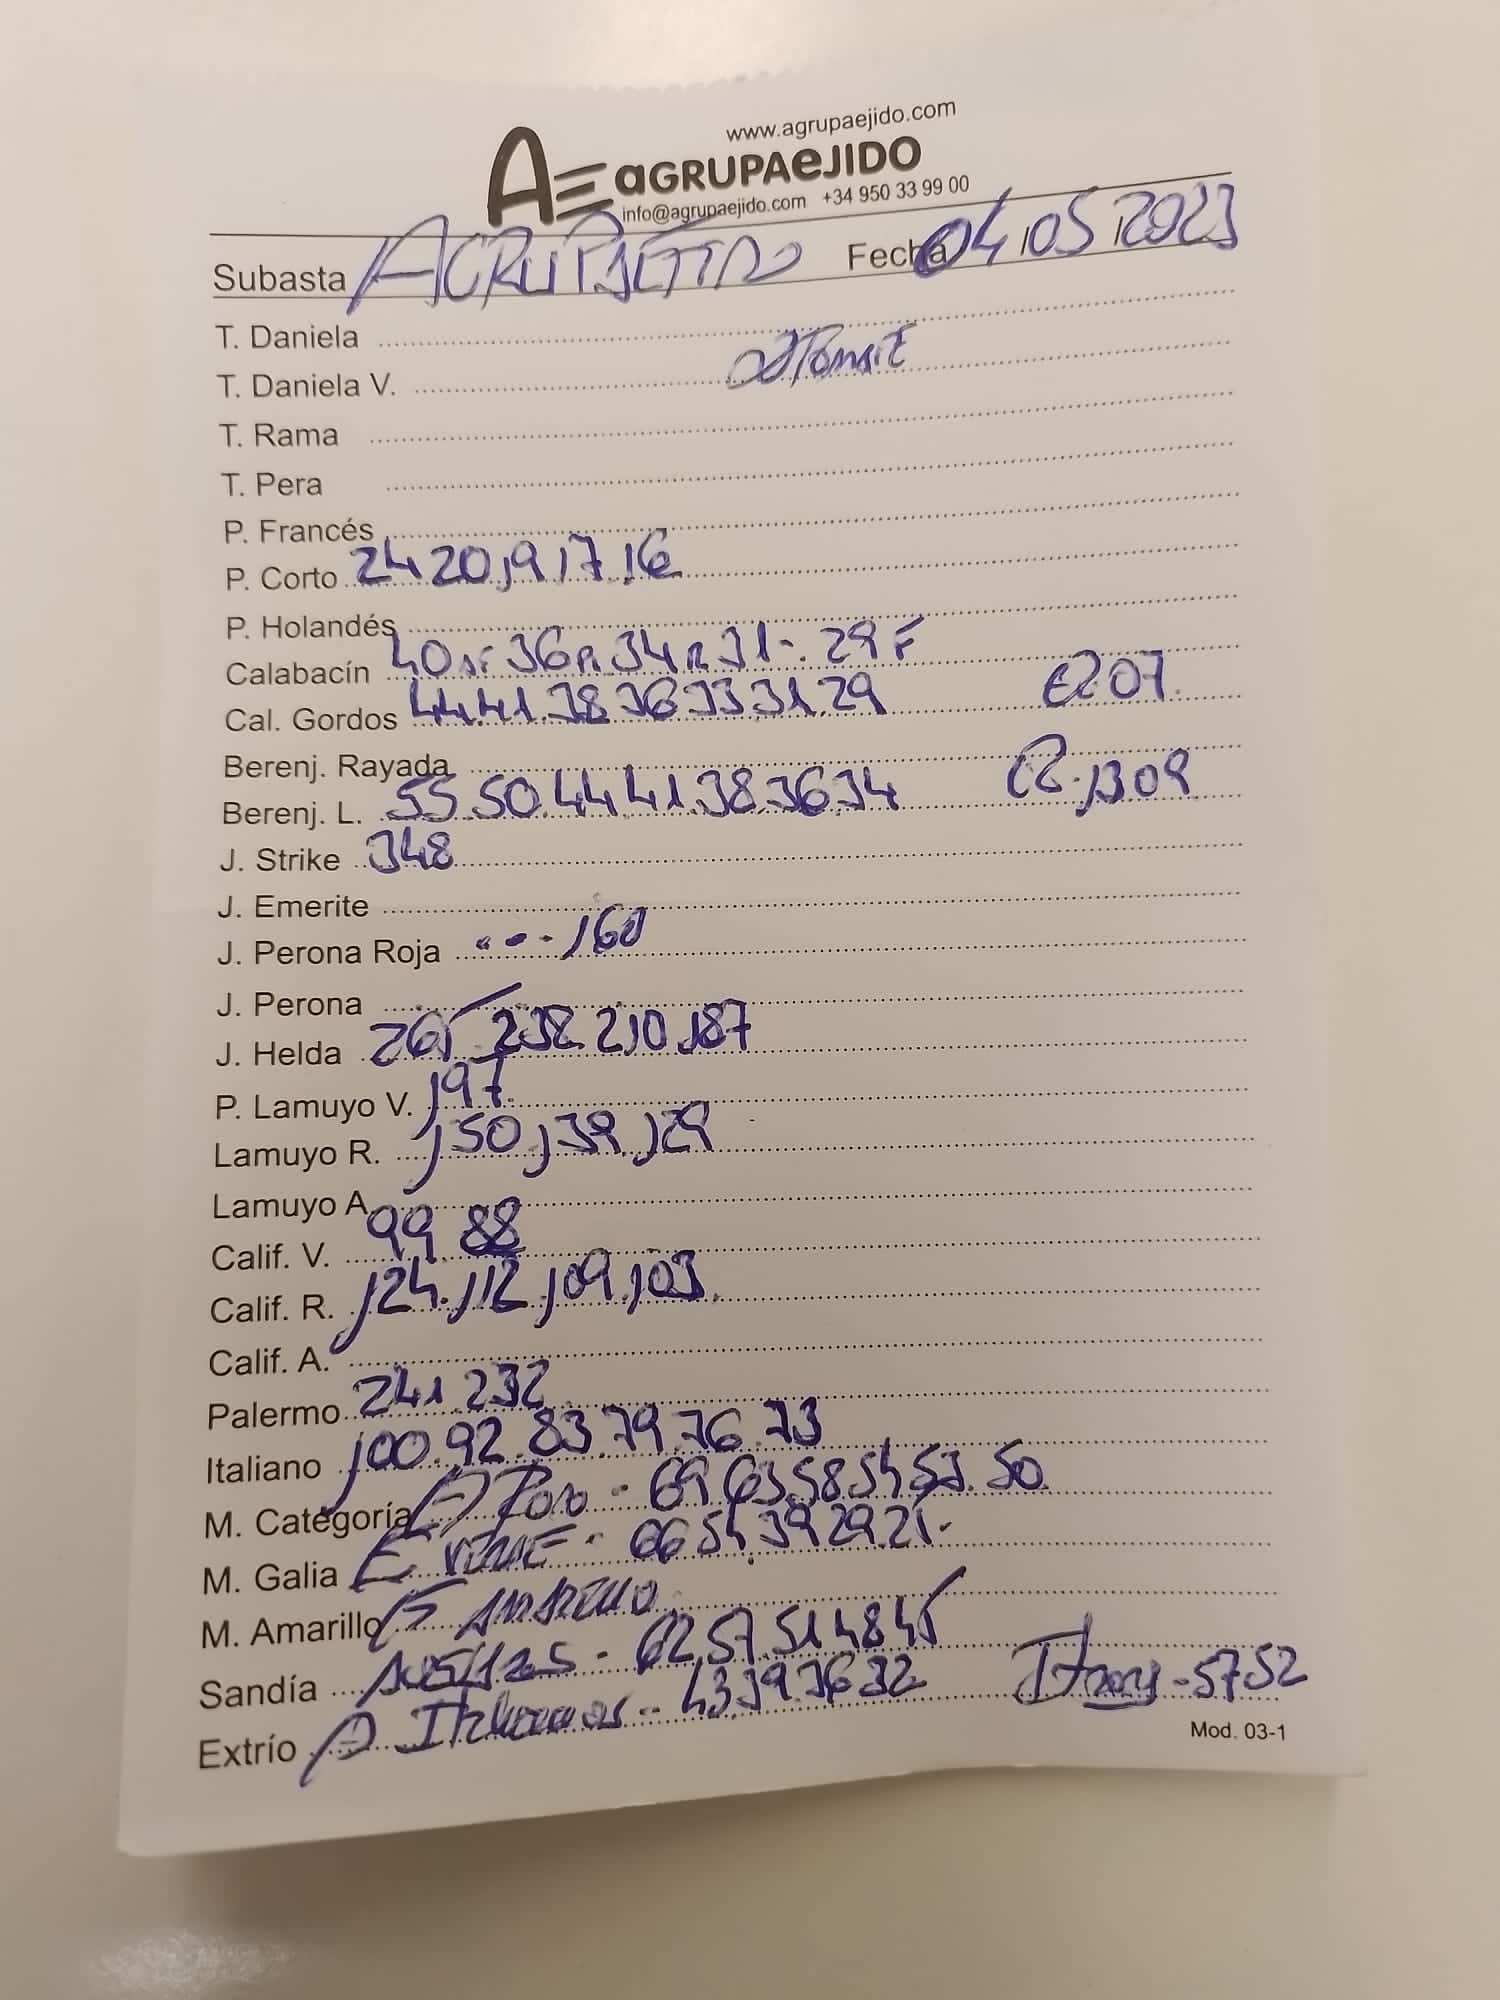 www.agrupaejido.com
AE aGRUPAeJIDO
info@agrupaejido.com +34 950 33 99 00
Subasta AGRUPAEJIDO Fecha 04/05/2023
T. Daniela
T. Daniela V.
T. Rama
T. Pera
P. Francés
P. Corto 24 20 19 17 16
P. Holandés
Calabacín 40 36 34 31 - 29 F
Cal. Gordos 44.41.38 36 33.31.29 207
Berenj. Rayada
Berenj. L. 55.50.44 41.38.36 34 1309
J. Strike 348
J. Emerite
J. Perona Roja 160
J. Perona
J. Helda 265 238 210.187
P. Lamuyo V. 197.
Lamuyo R. 150.139.129
Lamuyo A.
Calif. V. 99 88
Calif. R. 124.112.109.103.
Calif. A.
Palermo 241.232
Italiano 100.92.83.79.76.73
M. Categoría - 69 63 58 54 53.50
M. Galia - 66 54.39 29 25-
M. Amarillo
Sandía - 62.57.51 48 45
Extrío - 43 39 36 32 - 57 52
Mod. 03-1